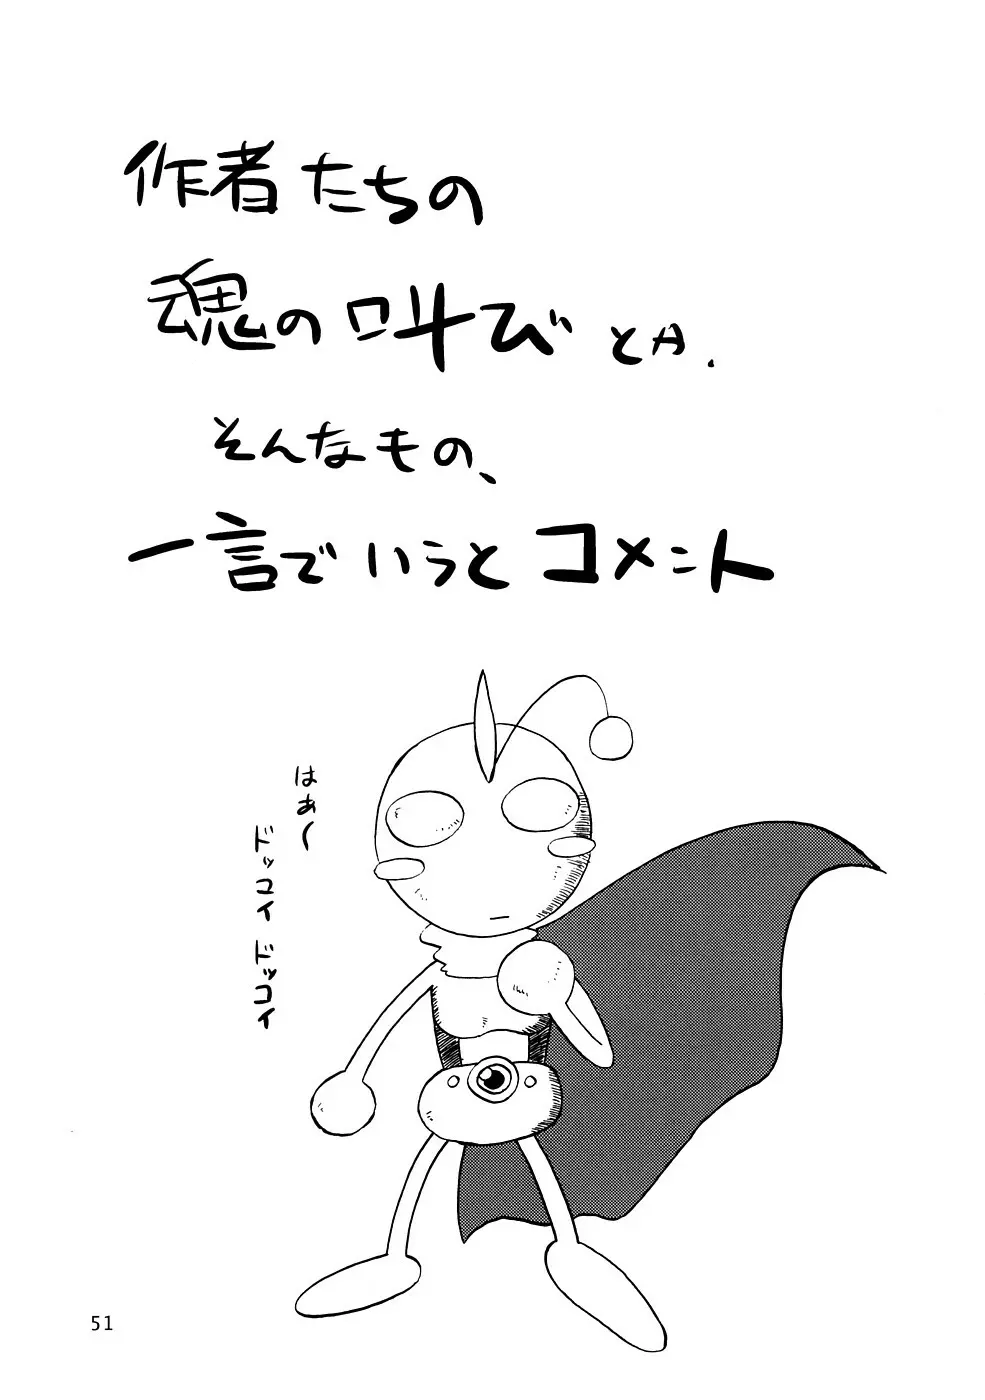 作者たちの
魂の叫びとか.
そんなもの、
一言でいうとコメント
はぁ〜
ドッコイ ドッコイ
51